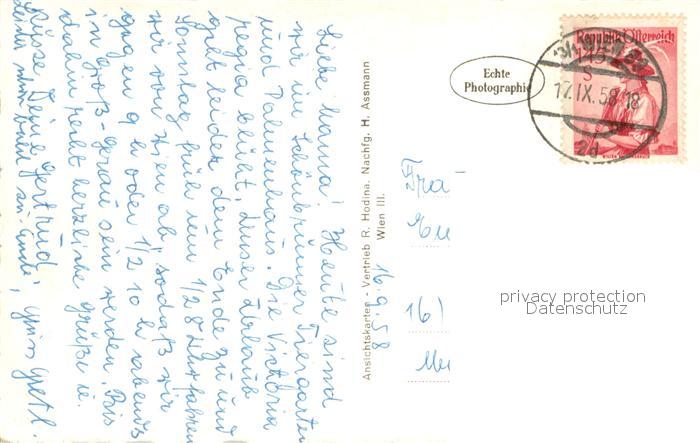 Liebe Mama! Heute sind
wir im Schönbrunner Tiergarten
und Palmenhaus. Die Victoria
regia blüht. Unser Urlaub
geht leider dem Ende zu und
Sonntag früh um 1/2 8 Uhr fahren
wir von Wien ab, sodaß wir
gegen 9 h oder 1/2 10 h abends
in Groß-Gerau sein werden. Bis
dahin recht herzliche Grüße u.
Küsse Deine Gertrud.
Leider schon bald zu Ende, Gruss Gretl
Ansichtskarten - Vertrieb R. Hodina. Nachfg. H. Assmann
Wien III.
16.9.58
Echte
Photographie
Republik Österreich
1.45
S
17.IX.58.18
2d
Fra
16)
privacy protection
Datenschutz